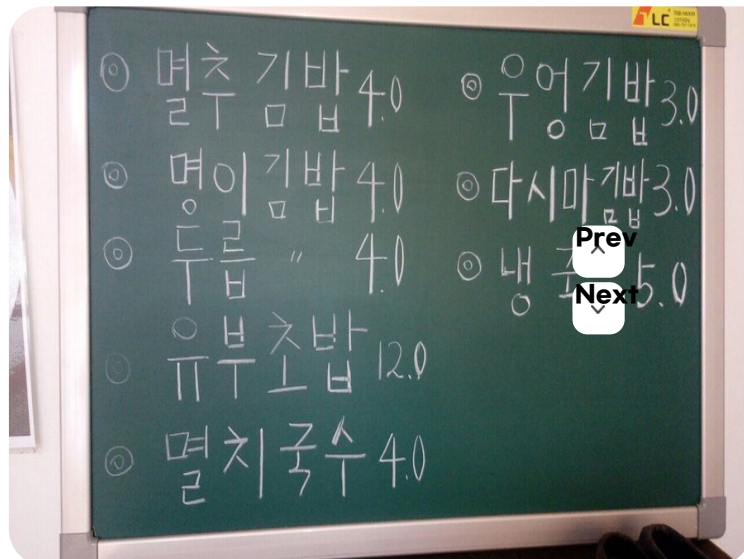 LC
◎ 멸추김밥 4.0
◎ 명이김밥 4.0
◎ 두릅 〃 4.0
◎ 유부초밥 12.0
◎ 멸치국수 4.0
◎ 우엉김밥 3.0
◎ 다시마김밥 3.0
◎ 냉 5.0
Prev
Next